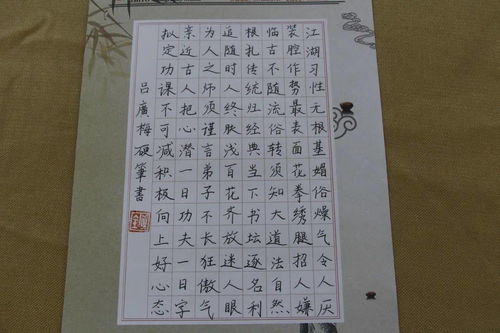 江湖习性无根基媚俗燥气令人厌
装腔作势最表面花拳绣腿招人嫌
临古不随流俗转须知大道法自然
根扎传统归经典当下书坛逐名利
追随时人终肤浅百花齐放迷人眼
为人之师须谨言弟子不长狂傲气
亲近古人把心潜一日功夫一日字
拟定功课不可减积极向上好心态
吕廣梅硬筆書